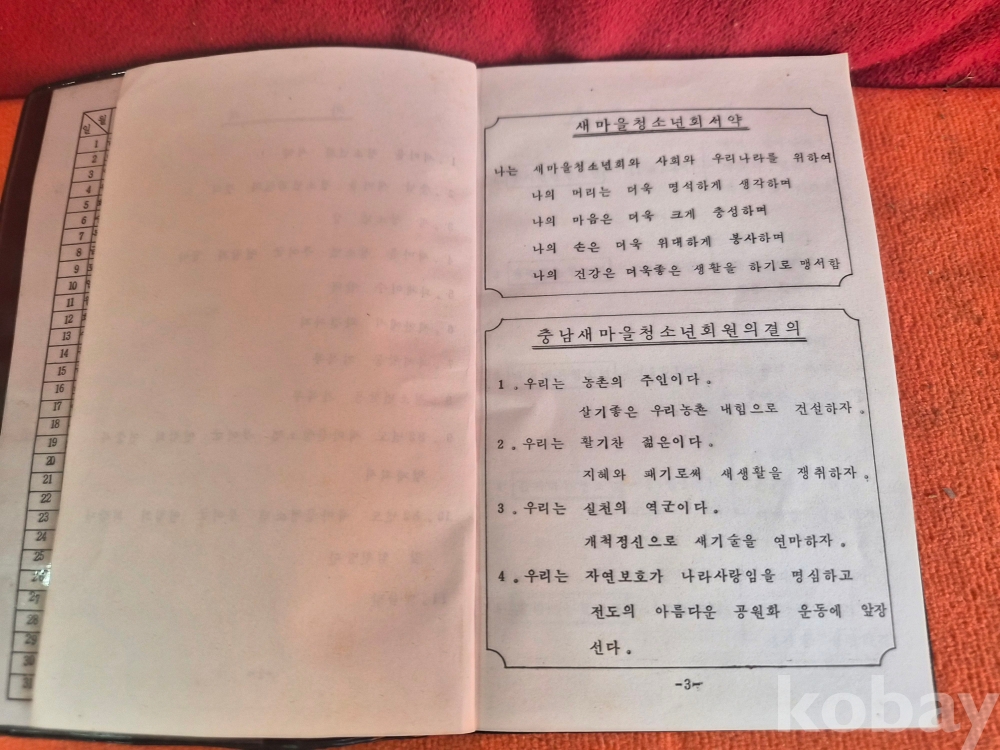 월
일
1
2
3
4
5
6
7
8
9
10
11
12
13
14
15
16
17
18
19
20
21
22
23
24
25
26
27
28
29
30
31
새마을청소년회서약
나는 새마을청소년회와 사회와 우리나라를 위하여
나의 머리는 더욱 명석하게 생각하며
나의 마음은 더욱 크게 충성하며
나의 손은 더욱 위대하게 봉사하며
나의 건강은 더욱좋은 생활을 하기로 맹서함
충남새마을청소년회원의결의
1. 우리는 농촌의 주인이다.
살기좋은 우리농촌 내힘으로 건설하자.
2. 우리는 활기찬 젊은이다.
지혜와 패기로써 새생활을 쟁취하자.
3. 우리는 실천의 역군이다.
개척정신으로 새기술을 연마하자.
4. 우리는 자연보호가 나라사랑임을 명심하고
전도의 아름다운 공원화 운동에 앞장
선다.
-3-
kobay